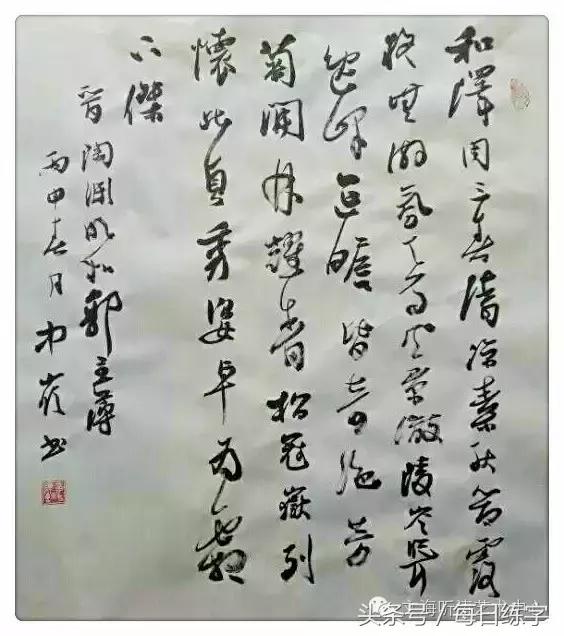 和澤周三春清凉素秋節露
凝無游氛天高風景澈陵岑聳
逸峰遥瞻皆奇絶芳
菊開林耀青松冠巖列
懷此貞秀姿卓為霜
下傑
晉陶淵明和郭主薄
丙申春月
头条号 / 每日练字